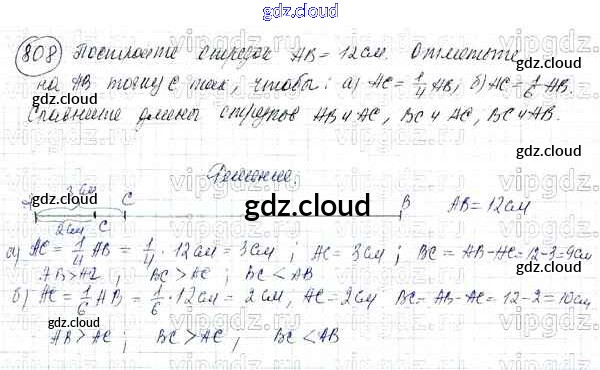 gdz.cloud
808 Постройте отрезок AB = 12 см. Отметьте
на AB точку C так, чтобы: а) AC = 1/4 AB, б) AC = 1/6 AB.
Сравните длины отрезков AB и AC, BC и AC, BC и AB.
Решение.
3 см
A C B AB = 12 см
2 см C
а) AC = 1/4 AB = 1/4 · 12 см = 3 см ; AC = 3 см ; BC = AB - AC = 12 - 3 = 9 см
AB > AC ; BC > AC ; BC < AB
б) AC = 1/6 AB = 1/6 · 12 см = 2 см, AC = 2 см BC = AB - AC = 12 - 2 = 10 см
AB > AC ; BC > AC ; BC < AB
gdz.cloud